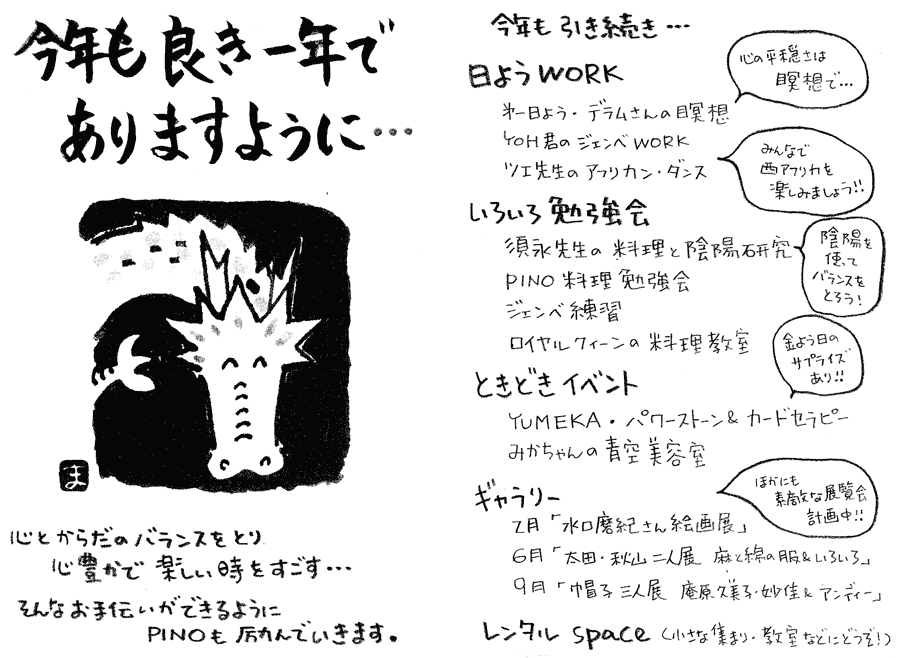 今年も良き一年で
ありますように…
ま
心とからだのバランスをとり
心豊かで楽しい時をすごす…
そんなお手伝いができるように
PINOも励んでいきます。
今年も引き続き…
日ようWORK
心の平穏さは
瞑想で…
第一日よう・デラムさんの瞑想
YOH君のジェンベWORK
ツエ先生のアフリカン・ダンス
みんなで
西アフリカを
楽しみましょう!!
いろいろ勉強会
須永先生の料理と陰陽研究
陰陽を
使って
バランスを
とろう!
PINO料理勉強会
ジェンベ練習
ロイヤルクィーンの料理教室
金よう日の
サプライズ
あり!!
ときどきイベント
YUMEKA・パワーストーン&カードセラピー
みかちゃんの青空美容室
ギャラリー
ほかにも
素敵な展覧会
計画中!!
2月「水口磨紀さん絵画展」
6月「太田・秋山二人展 麻と綿の服&いろいろ」
9月「帽子三人展 庵原久美子・妙佳&アンディー」
レンタル space (小さな集まり・教室などにどうぞ!)